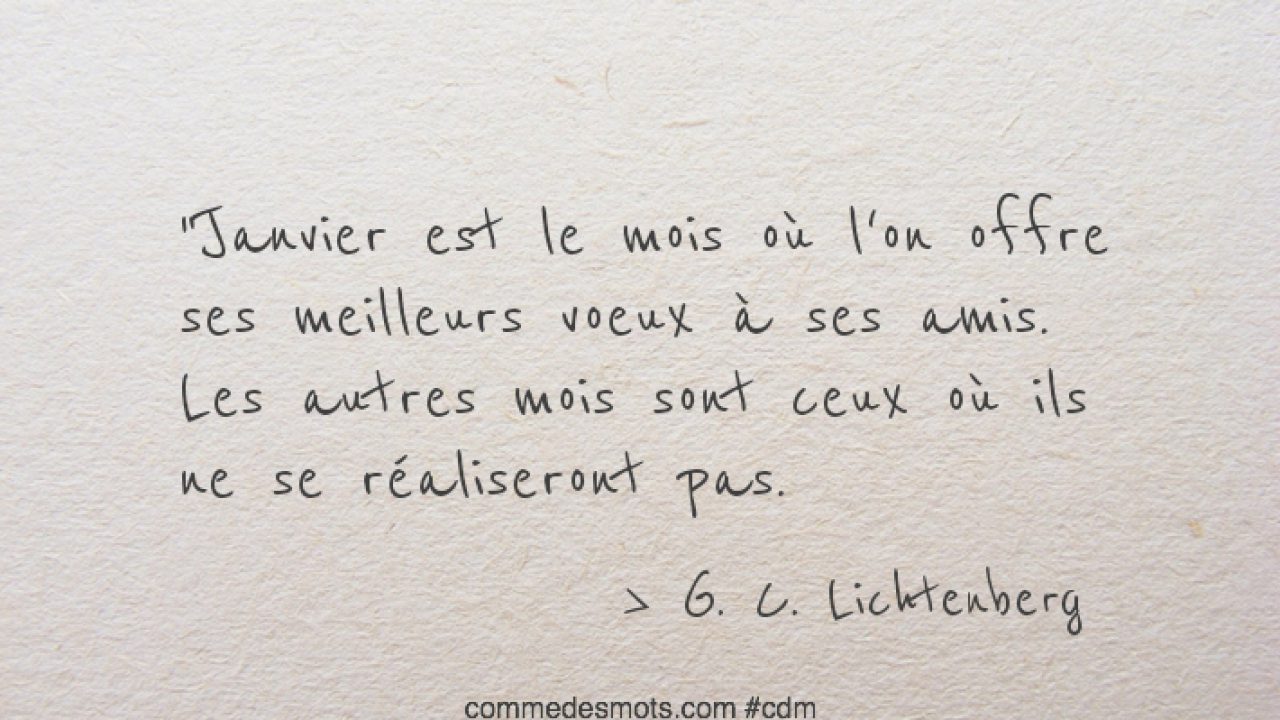 "Janvier est le mois où l'on offre
ses meilleurs voeux à ses amis.
Les autres mois sont ceux où ils
ne se réaliseront pas.
> G. C. Lichtenberg
commedesmots.com #cdm